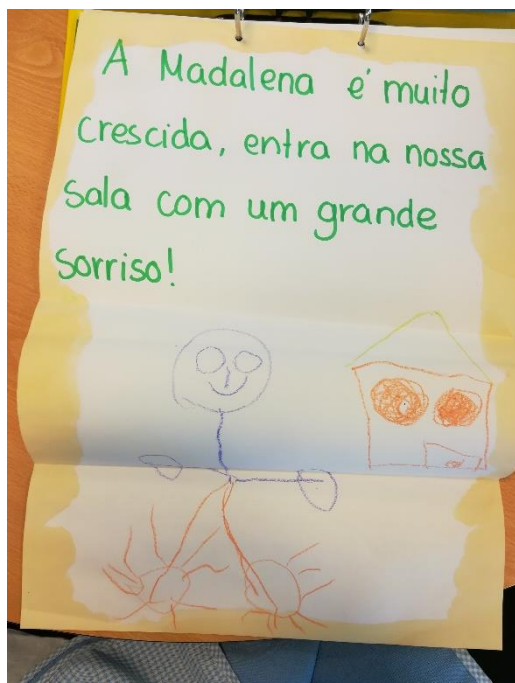 A Madalena é muito
crescida, entra na nossa
sala com um grande
sorriso!